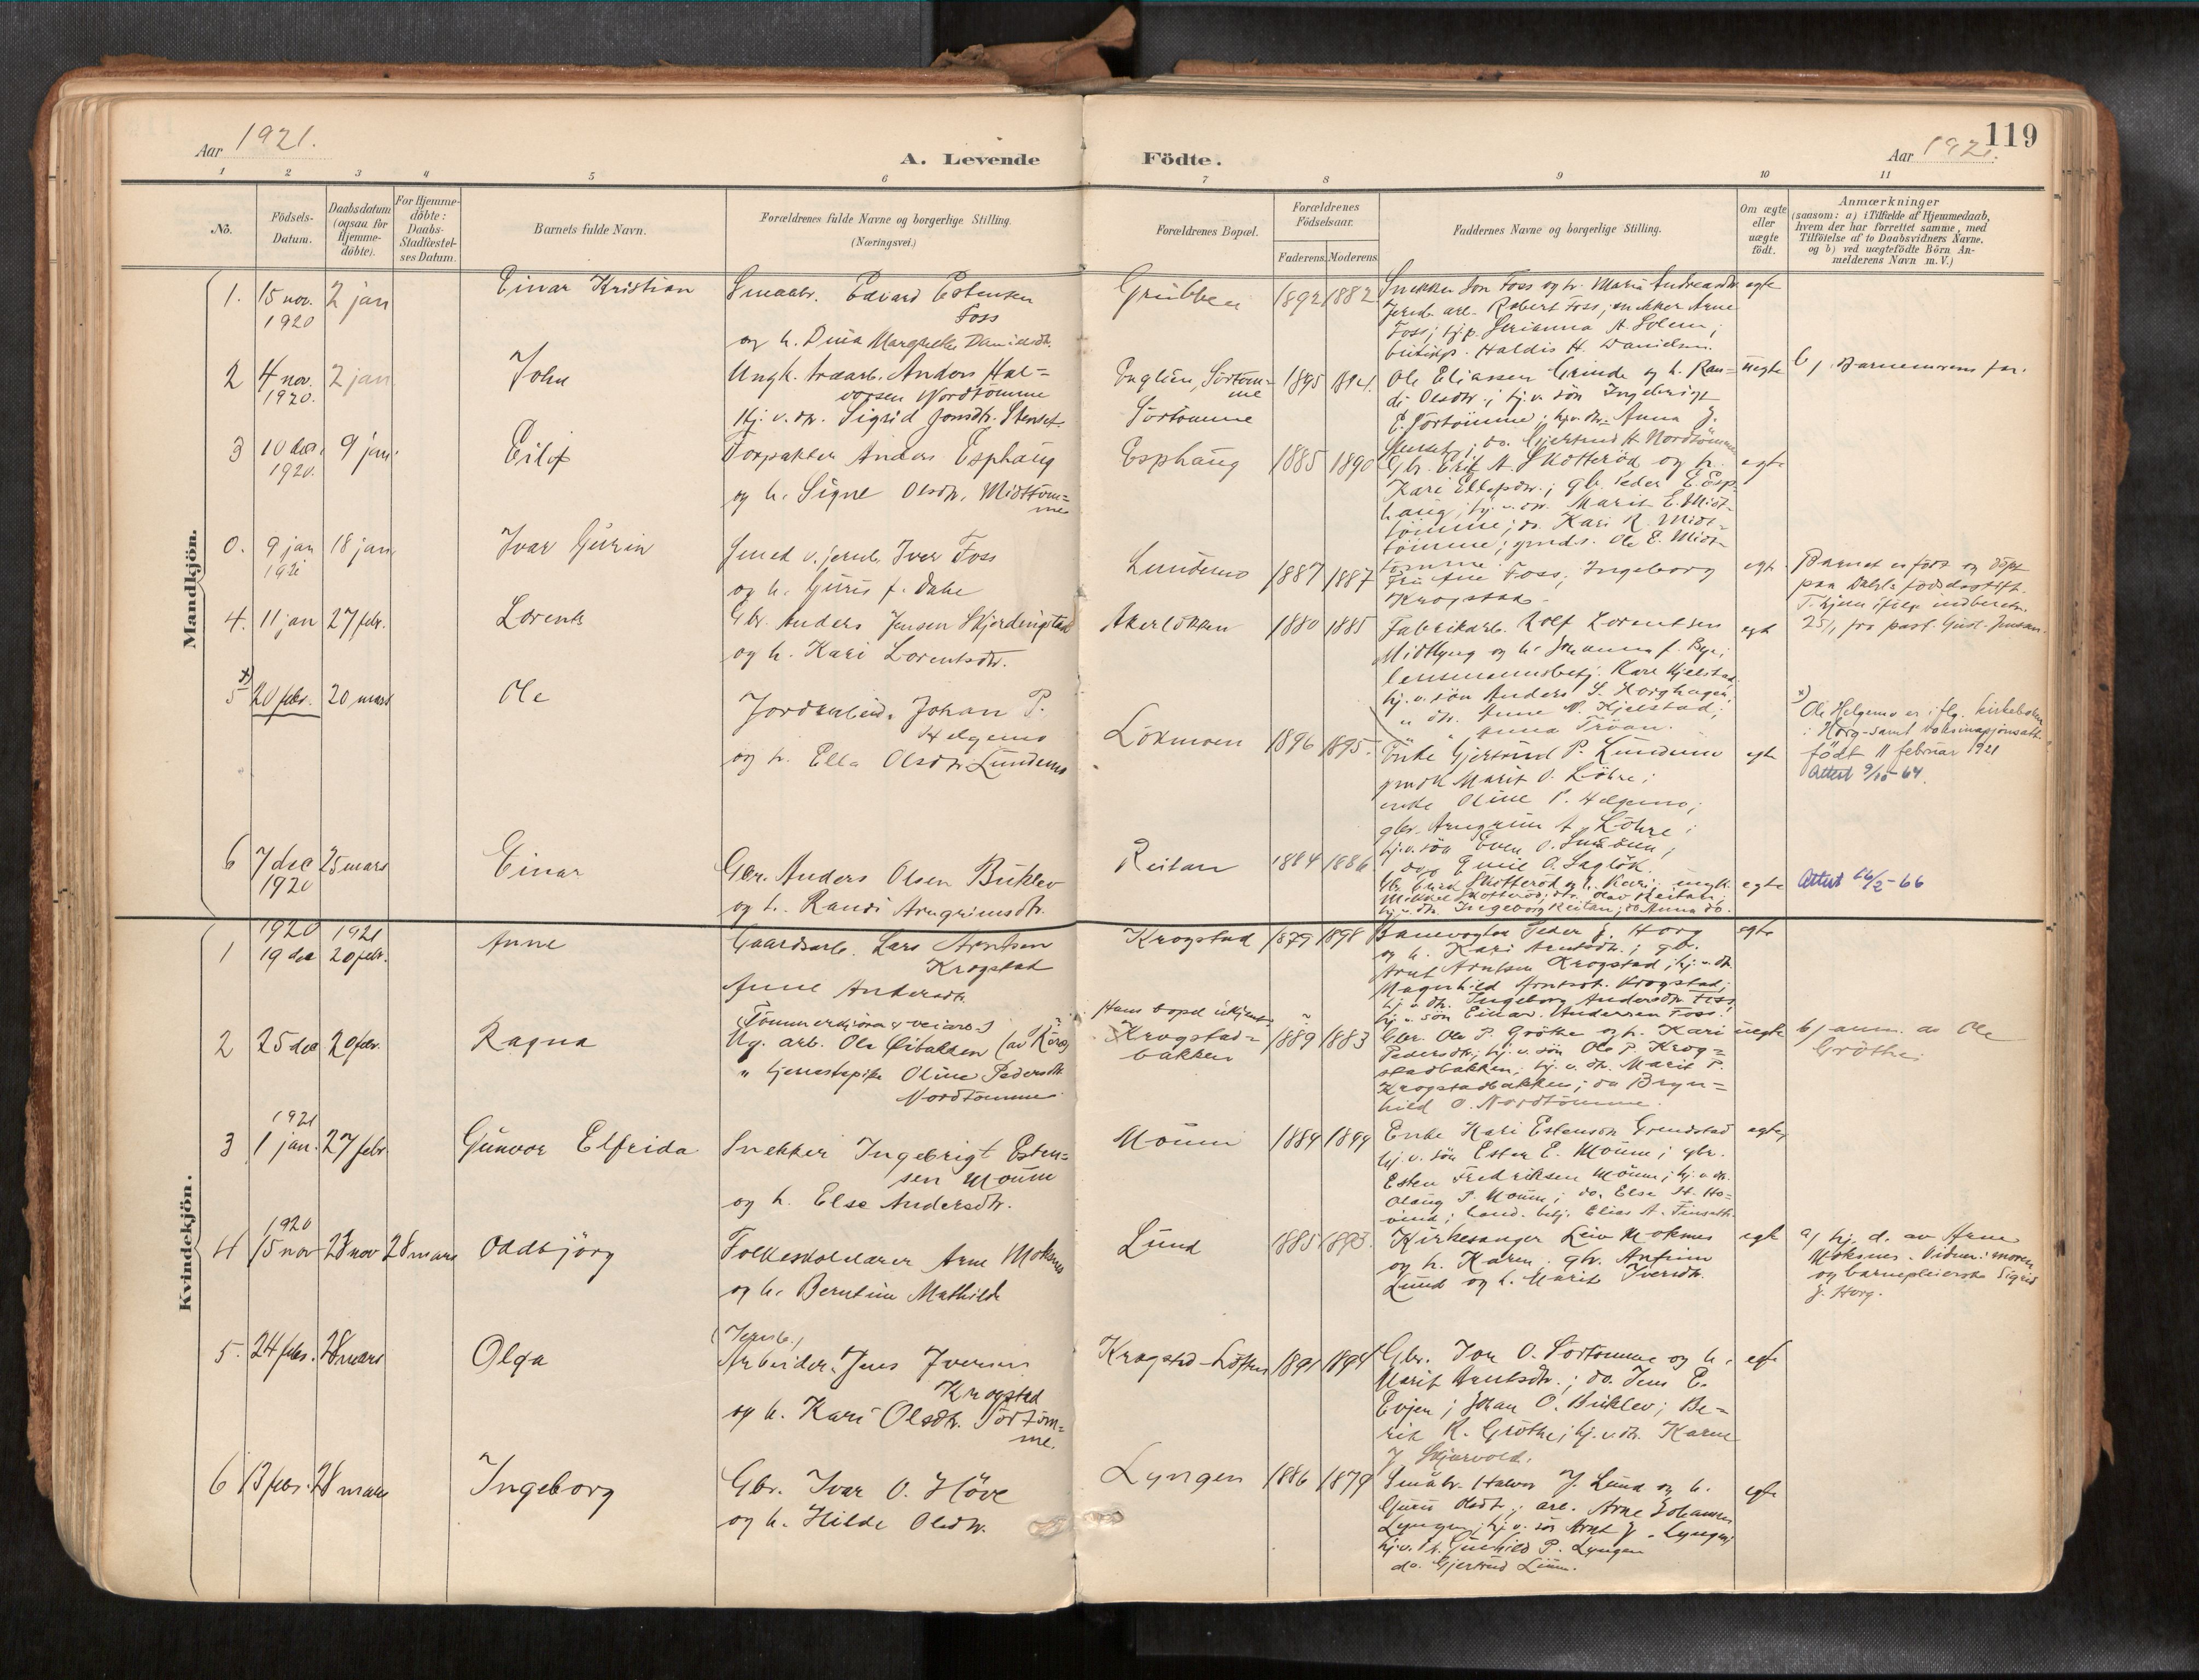 Aar 1921.
A. Levende
Födte.
119
Aar 1921.
1 2 3 4 5 6 7 8 9 10 11
No.
Födsels-Datum.
Daabsdatum (ogsaa for Hjemme-döbte).
For Hjemme-döbte: Daabs-Stadfæstel-ses Datum.
Barnets fulde Navn.
Forældrenes fulde Navne og borgerlige Stilling.
(Næringsvei.)
Forældrenes Bopæl.
Forældrenes Födselsaar.
Faderens. Moderens.
Faddernes Navne og borgerlige Stilling.
Om ægte eller uægte födt.
Anmærkninger
(saasom: a) i Tilfælde af Hjemmedaab,
hvem der har forrettet samme, med
Tilföielse af to Daabsvidners Navne.
og b) ved uægtefödte Börn An-
melderens Navn m. V.)
Mandkjön.
1. 15 nov. 1920 2 jan Einar Kristian
Smaabr. Edvard Estensen
Foss
og h. Dina Margrethe
Grubben 1892 1882 egte
Foss og h. Maria
Robert Foss; snekker Arne
Foss;
Haldis H. Danielsen.
2 4 nov. 1920. 2 jan John
Ungk. træarb. Anders Hal=
vorsen Nordtömme
Hj. v. dr. Sigrid Jonsdtr. Stenset.
Sörtömme
1895 1894. uegte
Ole Eliassen Grinde og h. Ran=
di Olsdtr.; hj. v. sön Ingebrigt
E. Sörtömme; hj. v. dtr. Anna J.
Stenset; do. Gjertrud H. Nordtömme
b) Barnemorens far.
3 10 des. 1920. 9 jan. Eilif
Forpakter Anders Esphaug
og h. Signe Olsdtr. Midttöm=
me
Esphaug 1885 1890 egte
Gbr. Erik A. Skotteröd og h.
Kari Ellefsdtr.; gbr. Peder E. Esp-
haug; hj. v. dtr. Marit E. Midt-
tömme; do. Kari R. Midt-
tömme; gmds. Ole E. Midt-
tömme.
0. 9 jan 1921 18 jan. Ivar Gurin
Smed v. jernb. Iver Foss
og h. Guris f. Dahe
Lundemo 1887 1887 egt.
Fru Ane Foss; Ingeborg
Krogstad.
Barnet er födt og döpt
paa födselsstift.
T.hjem ifölge indberetn.
25/1 fra past. Gust. Jensen.
4. 11 jan 27 febr. Lorents
Gbr. Anders Jensen Skjerdingstad
og h. Kari Lorentsdtr.
Akerlökken 1880 1885 egt
Fabrikarb. Rolf Lorentsen
Midtlyng og h. Johanna f. Bye;
lensmannsbetj. Kare Kjelstad
hj. v. sön Anders S. Horghagen;
" dtr. Anne N. Kjelstad;
" Anna Tröan.
x) 5 20 febr. 20 mars Ole
Jordarbeid. Johan P.
Helgemo
og h. Ella Olsdtr. Lundemo
Lökmoen 1896 1895. egte
Enke Gjertrud P. Lundemo
gmdk Marit O. Löhre;
enke Oline P. Helgemo;
gbr. Arngrim A. Löhre;
hj. v. sön Even O.
do. Emil O.
x) Ole Helgemo er iflg. kirkeboken
i Horg samt vaksinasjonsatt.
födt 11 februar 1921
Attest 9/10-64.
6 7 dec 1920 25 mars Einar
Gbr. Anders Olsen Buklev
og h. Randi Arngrimsdtr.
Reitan 1884 1886 egte
Gbr. Erik Skotteröd og h. Kari; ungk.
Mikkel Skotteröd; do. Olav Reitan;
hj. v. dtr. Ingeborg Reitan; do. Anna do.
Attest 16/2-66
Kvindekjön.
1 1920 19 dec 1921 20 febr. Anne
Gaardsarb. Lars Arntsen
Krogstad
Anne Andersdtr
Krogstad 1879 1898 egte
Banevogter Peder J. Horg
og h. Kari Arntsdtr.; gbr.
Arnt Arntsen Krogstad; hj. v. dtr.
Magnhild Arntsdt. Krogstad;
hj. v. dtr. Ingeborg Andersdtr Foss
hj. v. sön Einar Andersen Foss.
2 25 dec 20 febr. Ragna
Ug. arb. Ole Eibakken (av Röros)
" tjenestepike Oline Pedersdtr
Nordtömme
Hans bopel ukjent.
Krogstad=
bakken
? 1889 1883 uegte
Gbr. Ole P. Gröthe og h. Kari
Pedersdtr; hj. v. sön Ole P. Krog=
stadbakken; hj. v. dtr. Marit P.
Krogstadbakken; do Bryn=
hild O. Nordtömme.
b) anm. av Ole
Gröthe.
3 1921 1 jan. 27 febr. Gunvor Elfrida
Snekker Ingebrigt Esten=
sen Moum
og h. Else Andersdtr.
Moum 1884 1899 egte
Enke Kari Estensdtr Grendstad
hj. v. sön Esten E. Moum; gbr.
Esten Fredriksen Moum; hj. v. dtr.
Olaug P. Moum; do. Else H. Ho=
vind; hand. betj. Elias A.
4 1920 15 nov 28 nov 28 mars Oddbjörg
Folkeskolelærer Arne Moksnes
og h. Berntine Mathilde
Lund 1885 1893. egte
Kirkesanger Leiv Moksnes
og h. Karen; gbr. Anfinn
Lund og h. Marit Iversdtr.
a) hj. d. av Arne
Moksnes. Vidner: moren
og barnepleierske Sigrid
J. Horg.
5. 24 febr. 28 mars Olga
(Jernb.)
Arbeider Jens Iversen
Krogstad
og h. Kari Olsdtr. Sörtöm=
me.
Krogstad-Löften 1891 1894 egte
Gbr. Jon O. Sörtömme og h.
Marit Arntsdtr.; do. Jens E.
Evjen; Johan O. Buklev; Be=
rit K. Gröthe; hj. v. dtr. Karen
J. Skjervold.
6 13 febr. 28 mars Ingeborg
Gbr. Ivar O. Höve
og h. Hilde Olsdtr.
Lyngen 1886 1879 egte
Småbr. Halvor J. Lund og h.
Guru Olsdtr.; arb. Arne Johansen
Lyngen; hj. v. sön Arnt J. Lyngen;
hj. v. dt. Gunhild P. Lyngen
do. Gjertrud Lium.